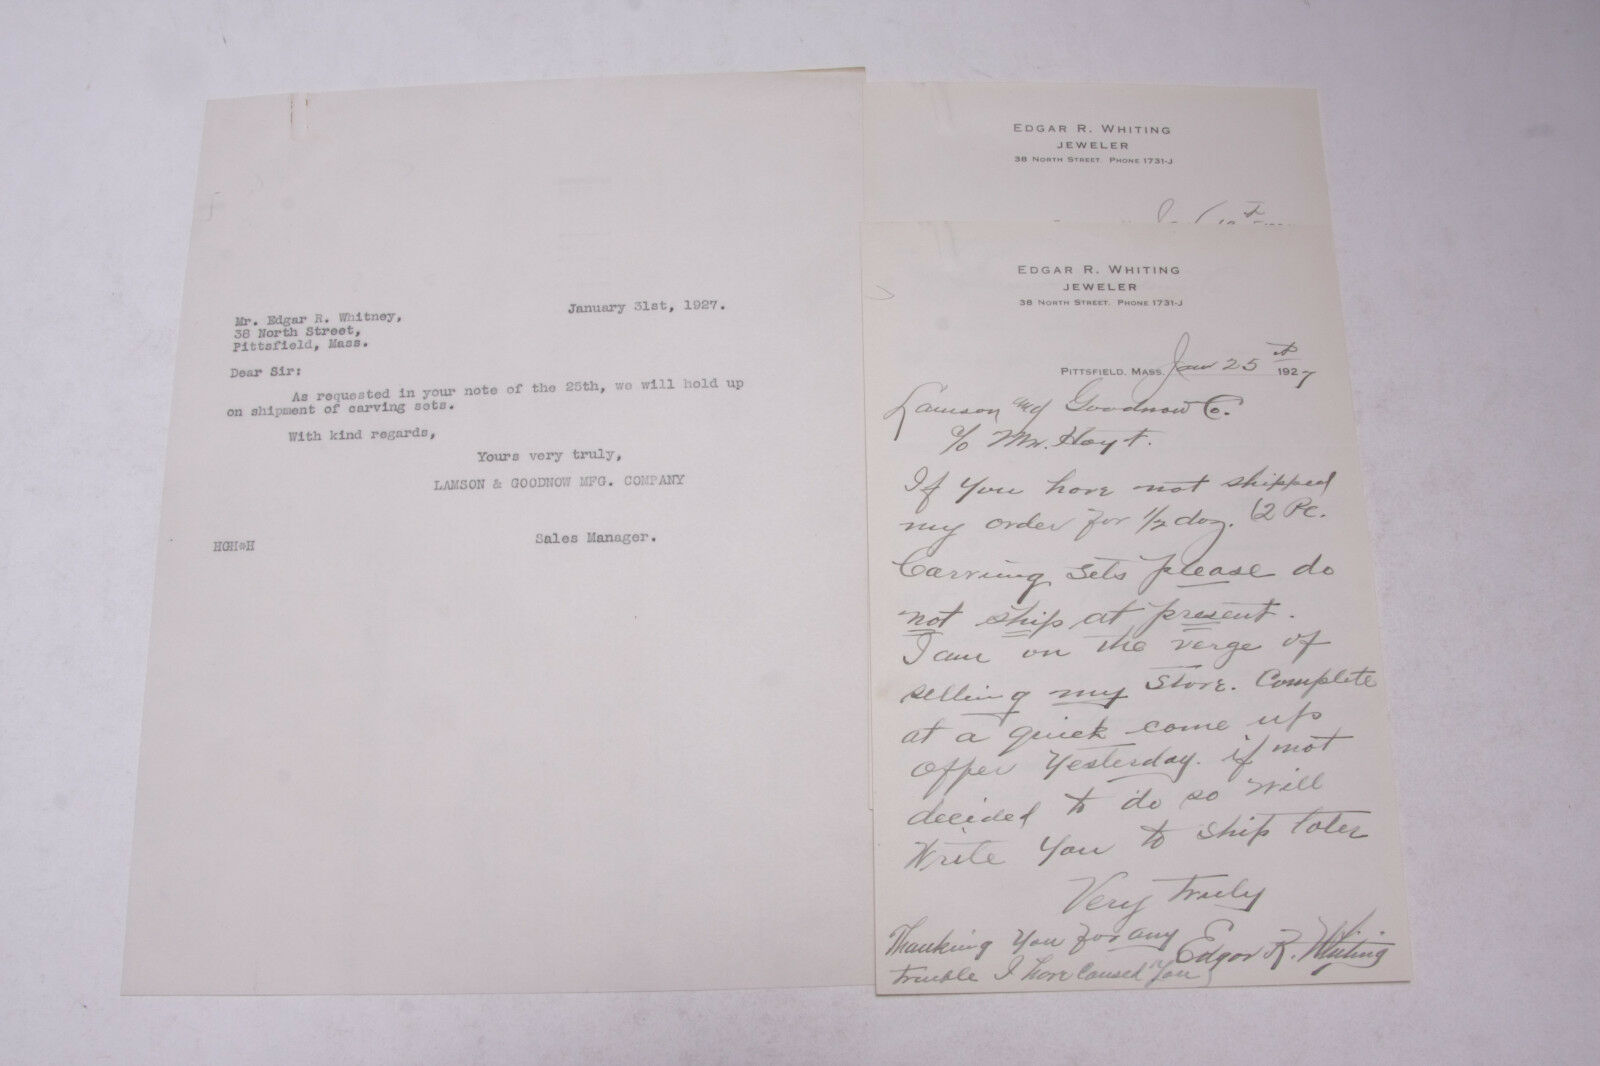 January 31st, 1927.
Mr. Edgar R. Whitney,
38 North Street,
Pittsfield, Mass.
Dear Sir:
As requested in your note of the 25th, we will hold up
on shipment of carving sets.
With kind regards,
Yours very truly,
LAMSON & GOODNOW MFG. COMPANY
HGH*H
Sales Manager.
EDGAR R. WHITING
JEWELER
38 NORTH STREET. PHONE 1731-J
EDGAR R. WHITING
JEWELER
38 NORTH STREET. PHONE 1731-J
PITTSFIELD, MASS. Jan 25th 1927
Lamson and Goodnow Co.
c/o Mr. Hoyt.
If You have not shipped
my order for 1/2 doz. 2 Pc.
Carving sets please do
not ship at present.
I am on the verge of
selling my store. Complete
at a quick come up
offer Yesterday. if not
decided to do so will
Write You to ship later
Very truly
Edgar R. Whiting
Thanking You for any
trouble I have caused You